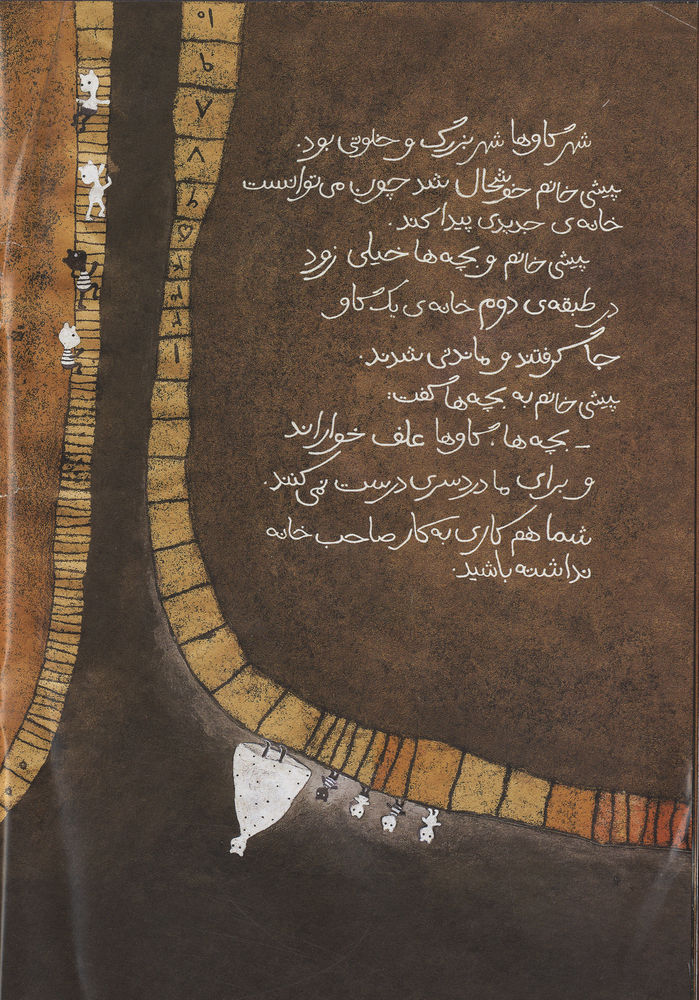 شهر گاوها شهر بزرگ و خلوتی بود.
پیشی خانم خوشحال شد چون می‌توانست
خانه‌ی جدیدی پیدا کند.
پیشی خانم و بچه‌ها خیلی زود
در طبقه‌ی دوم خانه‌ی یک گاو
جا گرفتند و ماندنی شدند.
پیشی خانم به بچه‌ها گفت:
ـ بچه‌ها، گاوها علف خواراند
و برای ما دردسری درست نمی‌کنند.
شما هم کاری به کار صاحب خانه
نداشته باشید.
۱۰
۹
۷
۸
۹
۵
۴
۳
۲
۱